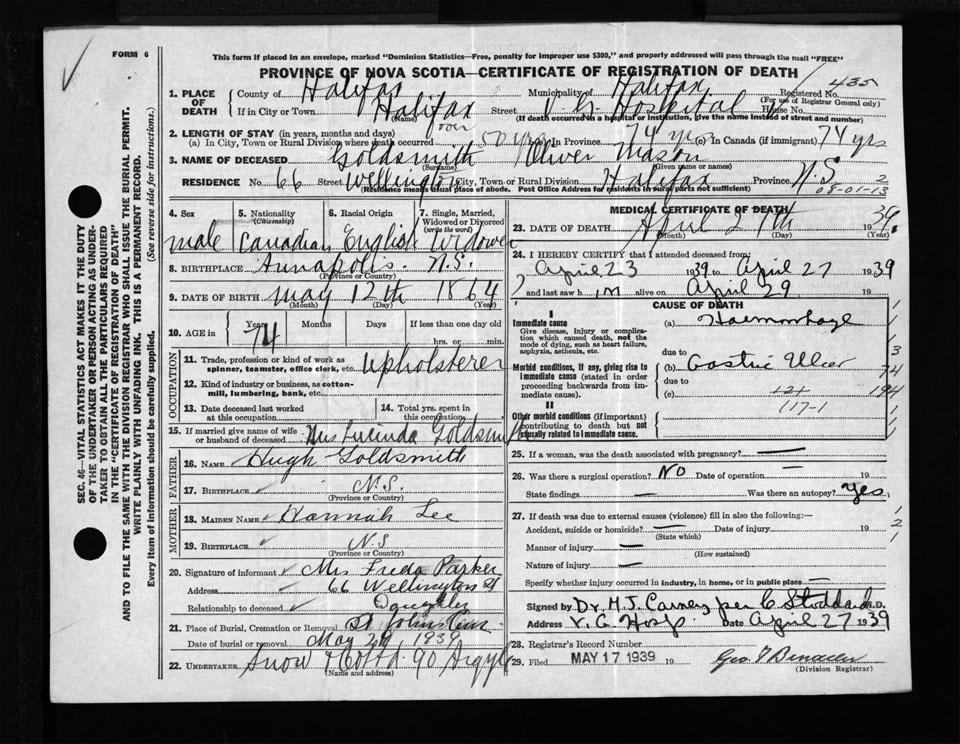 FORM 6
This form if placed in an envelope, marked "Dominion Statistics—Free, penalty for improper use $300," and properly addressed will pass through the mail "FREE"
PROVINCE OF NOVA SCOTIA—CERTIFICATE OF REGISTRATION OF DEATH
435
1. PLACE OF DEATH
County of Halifax Municipality of Halifax Registered No.
(For use of Registrar General only)
If in City or Town Halifax Street V. G. Hospital House No.
(Name) (If death occurred in a hospital or institution, give the name instead of street and number)
2. LENGTH OF STAY (in years, months and days)
(a) In City, Town or Rural Division where death occurred over 50 yrs (b) In Province 74 yrs (c) In Canada (if immigrant) 74 yrs
3. NAME OF DECEASED Goldsmith Oliver Mason
(Surname) (Given name or names)
RESIDENCE No. 66 Street Wellington City, Town or Rural Division Halifax Province N.S.
(Residence means usual place of abode. Post Office Address for residents in rural parts not sufficient)
2
08-01-13
4. Sex
male
5. Nationality
(Citizenship)
Canadian
6. Racial Origin
English
7. Single, Married, Widowed or Divorced
(write the word)
Widower
8. BIRTHPLACE Annapolis. N.S.
(Province or Country)
9. DATE OF BIRTH May 12th 1864
(Month) (Day) (Year)
10. AGE in Years Months Days If less than one day old
74 hrs. or min.
OCCUPATION
11. Trade, profession or kind of work as spinner, teamster, office clerk, etc. Upholsterer
12. Kind of industry or business, as cotton-mill, lumbering, bank, etc.
13. Date deceased last worked at this occupation
14. Total yrs. spent in this occupation
15. If married give name of wife or husband of deceased Mrs Lucinda Goldsmith
FATHER
16. NAME Hugh Goldsmith
17. BIRTHPLACE N.S.
(Province or Country)
MOTHER
18. MAIDEN NAME Hannah Lee
19. BIRTHPLACE N.S
(Province or Country)
20. Signature of informant Mrs Freda Parker
Address 66 Wellington St
Relationship to deceased Daughter
21. Place of Burial, Cremation or Removal St Johns Cem
Date of burial or removal May 29 1939
22. UNDERTAKER Snow & Co Ltd. 90 Argyle
(Name and address)
MEDICAL CERTIFICATE OF DEATH
23. DATE OF DEATH April 27th 1939.
(Month) (Day) (Year)
24. I HEREBY CERTIFY that I attended deceased from:
April 23 1939 to April 27 1939
I last saw him alive on April 29 19
CAUSE OF DEATH
I
Immediate cause
Give disease, injury or complication which caused death, not the mode of dying, such as heart failure, asphyxia, asthenia, etc.
(a) Haemorrhage
due to
Morbid conditions, if any, giving rise to immediate cause (stated in order proceeding backwards from immediate cause).
(b) Gastric Ulcer
due to
(c) 121
117-1
II
Other morbid conditions (if important) contributing to death but not causally related to immediate cause.
25. If a woman, was the death associated with pregnancy? —
26. Was there a surgical operation? No Date of operation —
State findings — Was there an autopsy? Yes
27. If death was due to external causes (violence) fill in also the following:—
Accident, suicide or homicide? — Date of injury 19
(State which)
Manner of injury —
(How sustained)
Nature of injury —
Specify whether injury occurred in industry, in home, or in public place —
Signed by Dr. H.J. Carney per C Stoddard M.D.
Address V. G. Hosp. Date April 27 1939
28. Registrar's Record Number
29. Filed MAY 17 1939 19
(Division Registrar)
SEC. 46—VITAL STATISTICS ACT MAKES IT THE DUTY
OF THE UNDERTAKER OR PERSON ACTING AS UNDERTAKER TO OBTAIN ALL THE PARTICULARS REQUIRED
IN THE "CERTIFICATE OF REGISTRATION OF DEATH"
AND TO FILE THE SAME WITH THE DIVISION REGISTRAR WHO SHALL ISSUE THE BURIAL PERMIT.
WRITE PLAINLY WITH UNFADING INK. THIS IS A PERMANENT RECORD.
Every item of information should be carefully supplied. (See reverse side for instructions.)